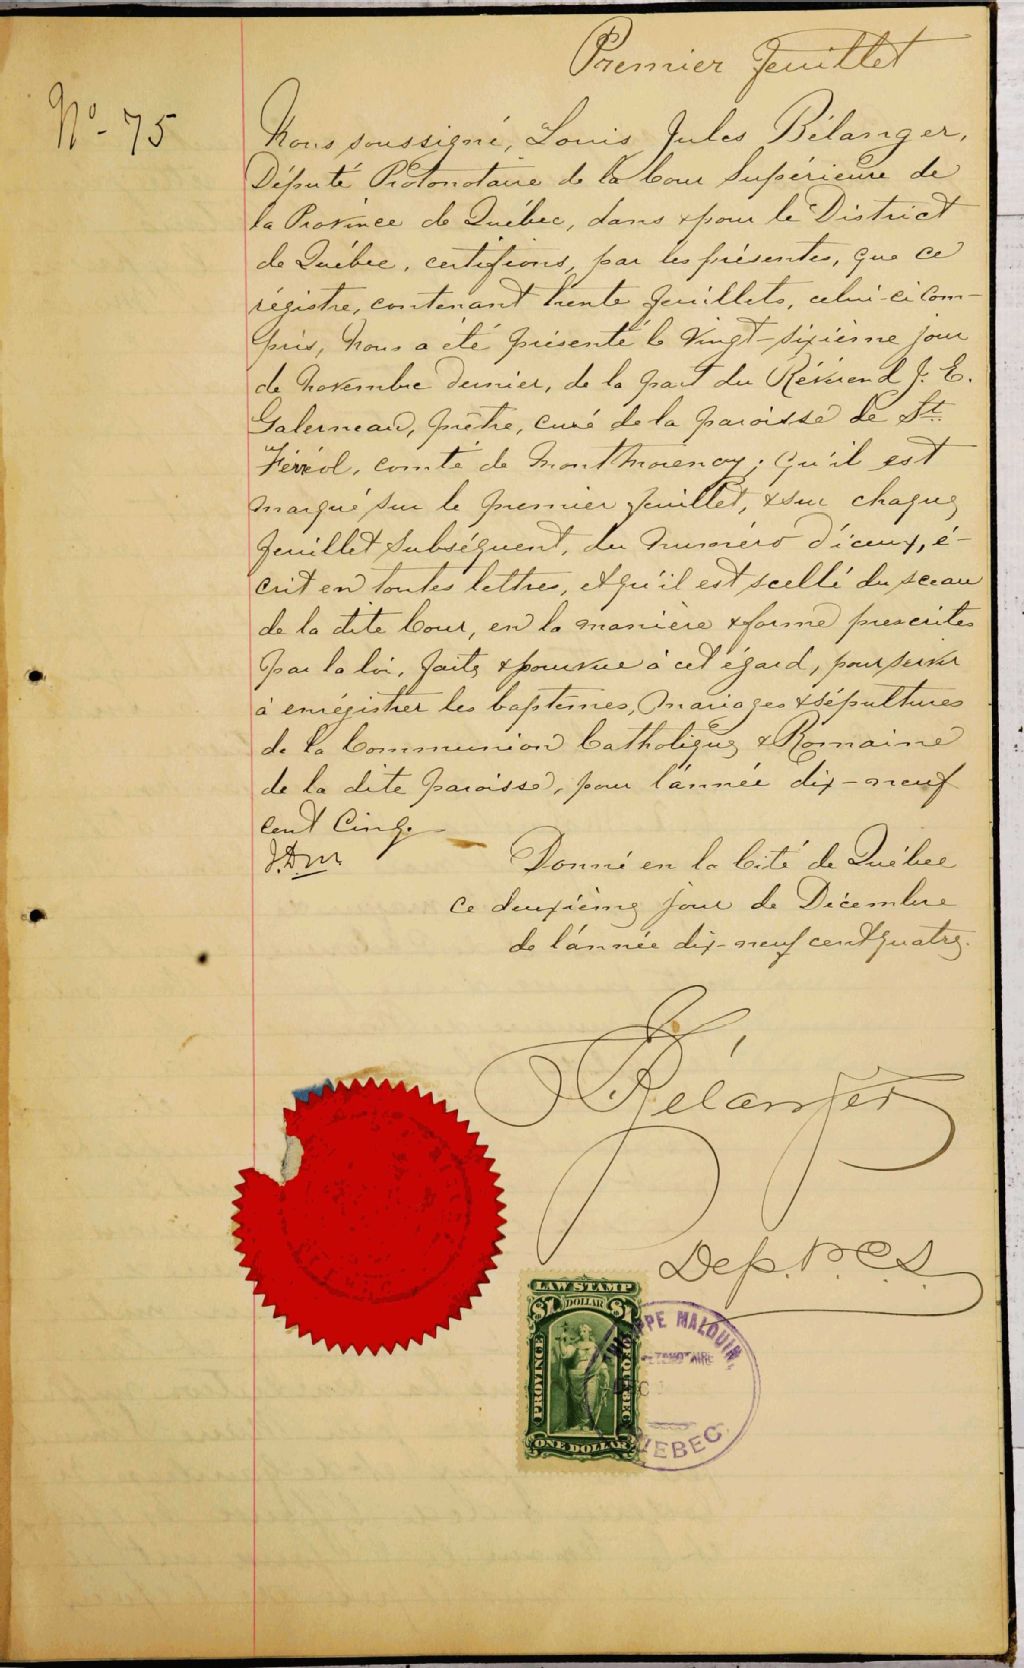 Premier feuillet
No- 75
Nous soussigné, Louis Jules Bélanger,
Député Protonotaire de la Cour Supérieure de
la Province de Québec, dans & pour le District
de Québec, certifions, par les présentes, que ce
régistre, contenant trente feuillets, celui-ci com-
pris, Nous a été présenté le vingt-sixième jour
de Novembre dernier, de la part du Révérend J. E.
Galerneau, prêtre, curé de la paroisse de St.
Férréol, comté de Montmorency; qu'il est
marqué sur le premier feuillet, & sur chaque
feuillet subséquent, du numéro d'iceux, é-
crit en toutes lettres, et qu'il est scellé du sceau
de la dite Cour, en la manière & forme prescrites
par la loi, faite & pourvue à cet égard, pour servir
à enrégistrer les baptêmes, mariages & sépultures
de la Communion Catholique & Romaine
de la dite paroisse, pour l'année dix-neuf
cent Cinq.
Donné en la Cité de Québec
ce deuxième jour de Décembre
de l'année dix-neuf cent quatre.
Bélanger
Dep. P.C.S.
LAW STAMP
$1 DOLLAR $1
PROVINCE
QUEBEC
ONE DOLLAR
MALOUIN,
QUEBEC.